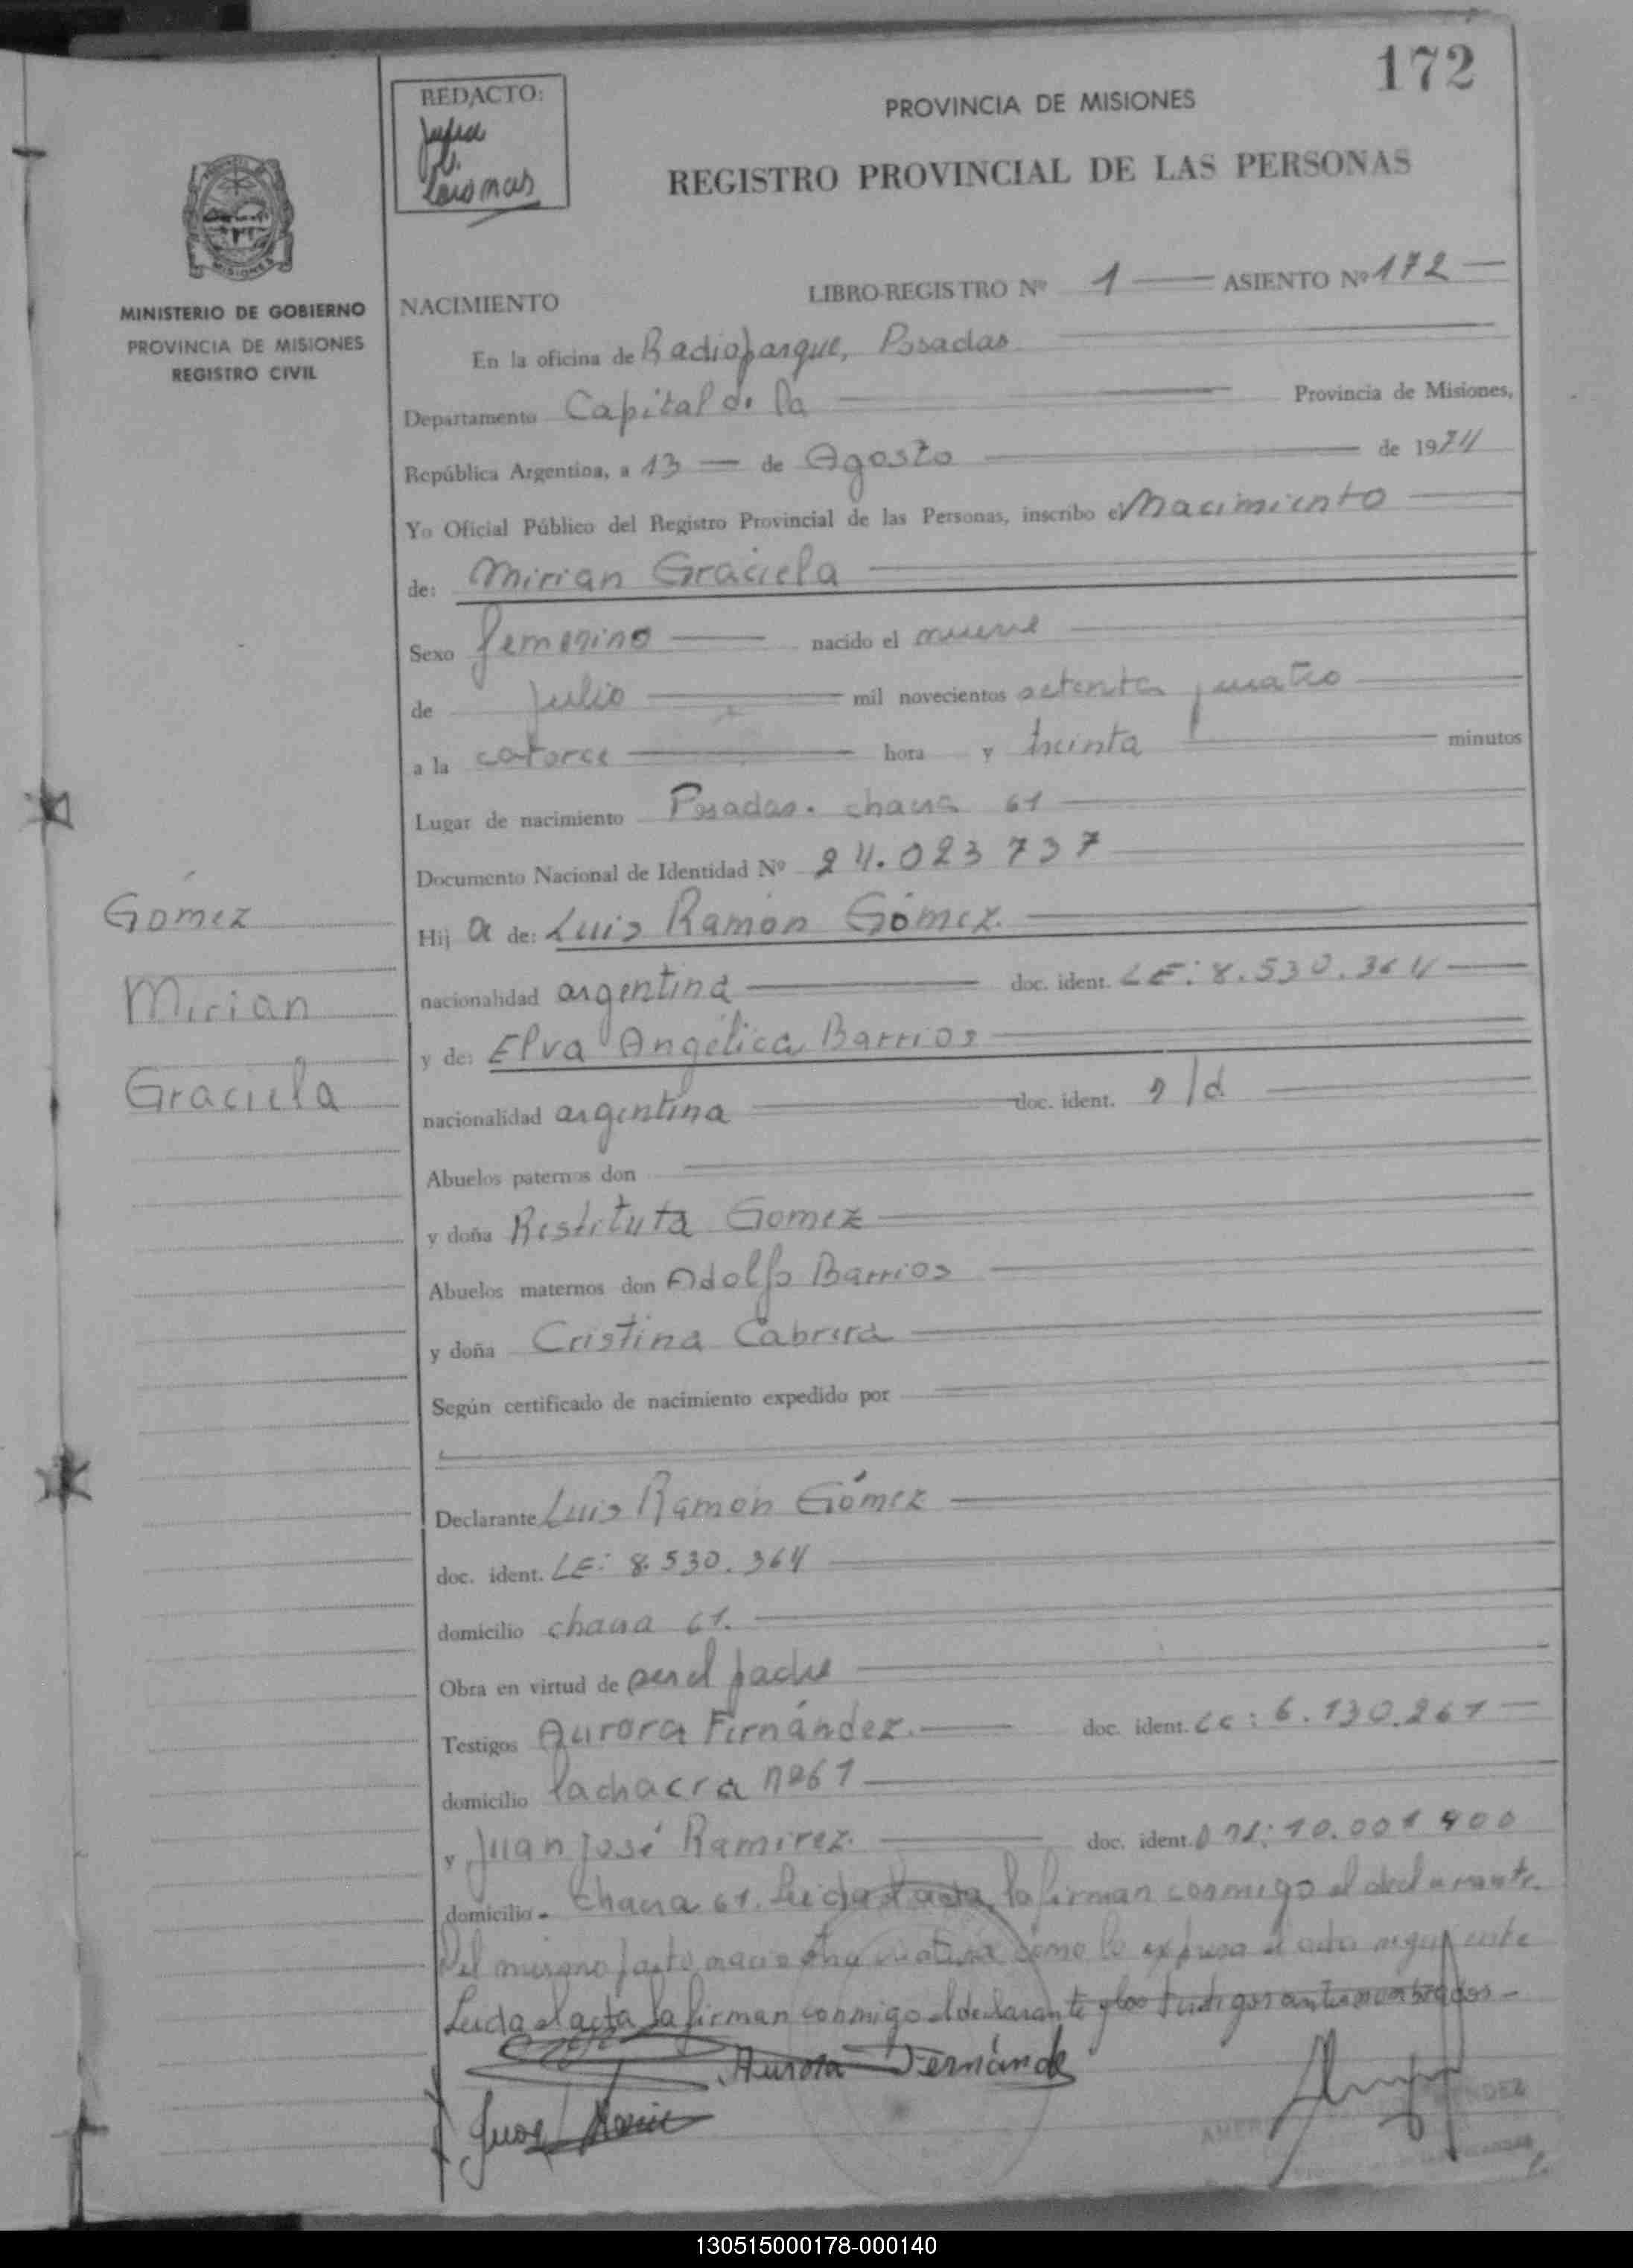 172
REDACTO:
PROVINCIA DE MISIONES
REGISTRO PROVINCIAL DE LAS PERSONAS
MISIONES
MINISTERIO DE GOBIERNO
PROVINCIA DE MISIONES
REGISTRO CIVIL
NACIMIENTO
LIBRO-REGISTRO Nº 1 ASIENTO Nº 172
En la oficina de Radioparque, Posadas
Departamento Capital de la Provincia de Misiones,
República Argentina, a 13 de Agosto de 1974
Yo Oficial Público del Registro Provincial de las Personas, inscribo el Nacimiento
de: Mirian Graciela
Sexo femenino nacido el nueve
de Julio mil novecientos setenta y cuatro
a la catorce hora y treinta minutos
Lugar de nacimiento Posadas. chacra 61
Documento Nacional de Identidad Nº 24.023737
Gómez
Mirian
Graciela
Hij a de: Luis Ramón Gómez
nacionalidad argentina doc. ident. LE: 8.530.364
y de: Elva Angélica Barrios
nacionalidad argentina doc. ident. n/d
Abuelos paternos don
y doña Restituta Gomez
Abuelos maternos don Adolfo Barrios
y doña Cristina Cabrera
Según certificado de nacimiento expedido por
Declarante Luis Ramón Gómez
doc. ident. LE: 8.530.364
domicilio chacra 61.
Obra en virtud de ser el padre
Testigos Aurora Fernández. doc. ident. Lc: 6.130.261
domicilio la chacra nº 61
y Juan José Ramirez. doc. ident. DNI: 10.001400
domicilio chacra 61. Leida el acta, la firman conmigo el declarante.
Del mismo parto nació como lo expresa el acta
Leida el acta la firman conmigo el declarante y los testigos antes nombrados
Aurora Fernande
Juan
130515000178-000140